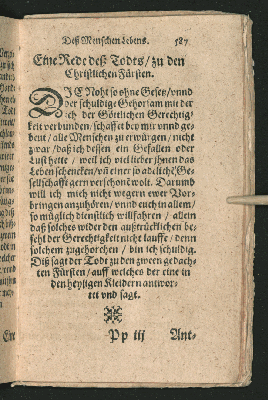 Deß Menschen Lebens. 587
Eine Rede deß Todts / zu den
Christlichen Fürsten.
DIE Noht so ohne Gesetz / vnnd
der schuldige Gehorsam mit der
ich der Göttlichen Gerechtig-
keit verbunden / schaffet bey mir vnnd ge-
beut / alle Menschen zu erwürgen / nicht
zwar / daß ich dessen ein Gefallen oder
Lust hette / weil ich viel lieber jhnen das
Leben schencken / vñ einer so adelichẽ Ge-
sellschafft gern verschonẽ wolt. Darumb
will ich mich nicht wegern ewer Vor-
bringen anzuhören / vnnd euch in allem /
so müglich dienstlich willfahren / allein
daß solches wider den außtrücklichen be-
fehl der Gerechtigkeit nicht lauffe / denn
solchem zugehorchen / bin ich schuldig.
Diß sagt der Todt zu den zween gedach-
ten Fürsten / auff welches der eine in
den heyligen Kleidern antwor-
tet vnd sagt.
Pp iij Ant-